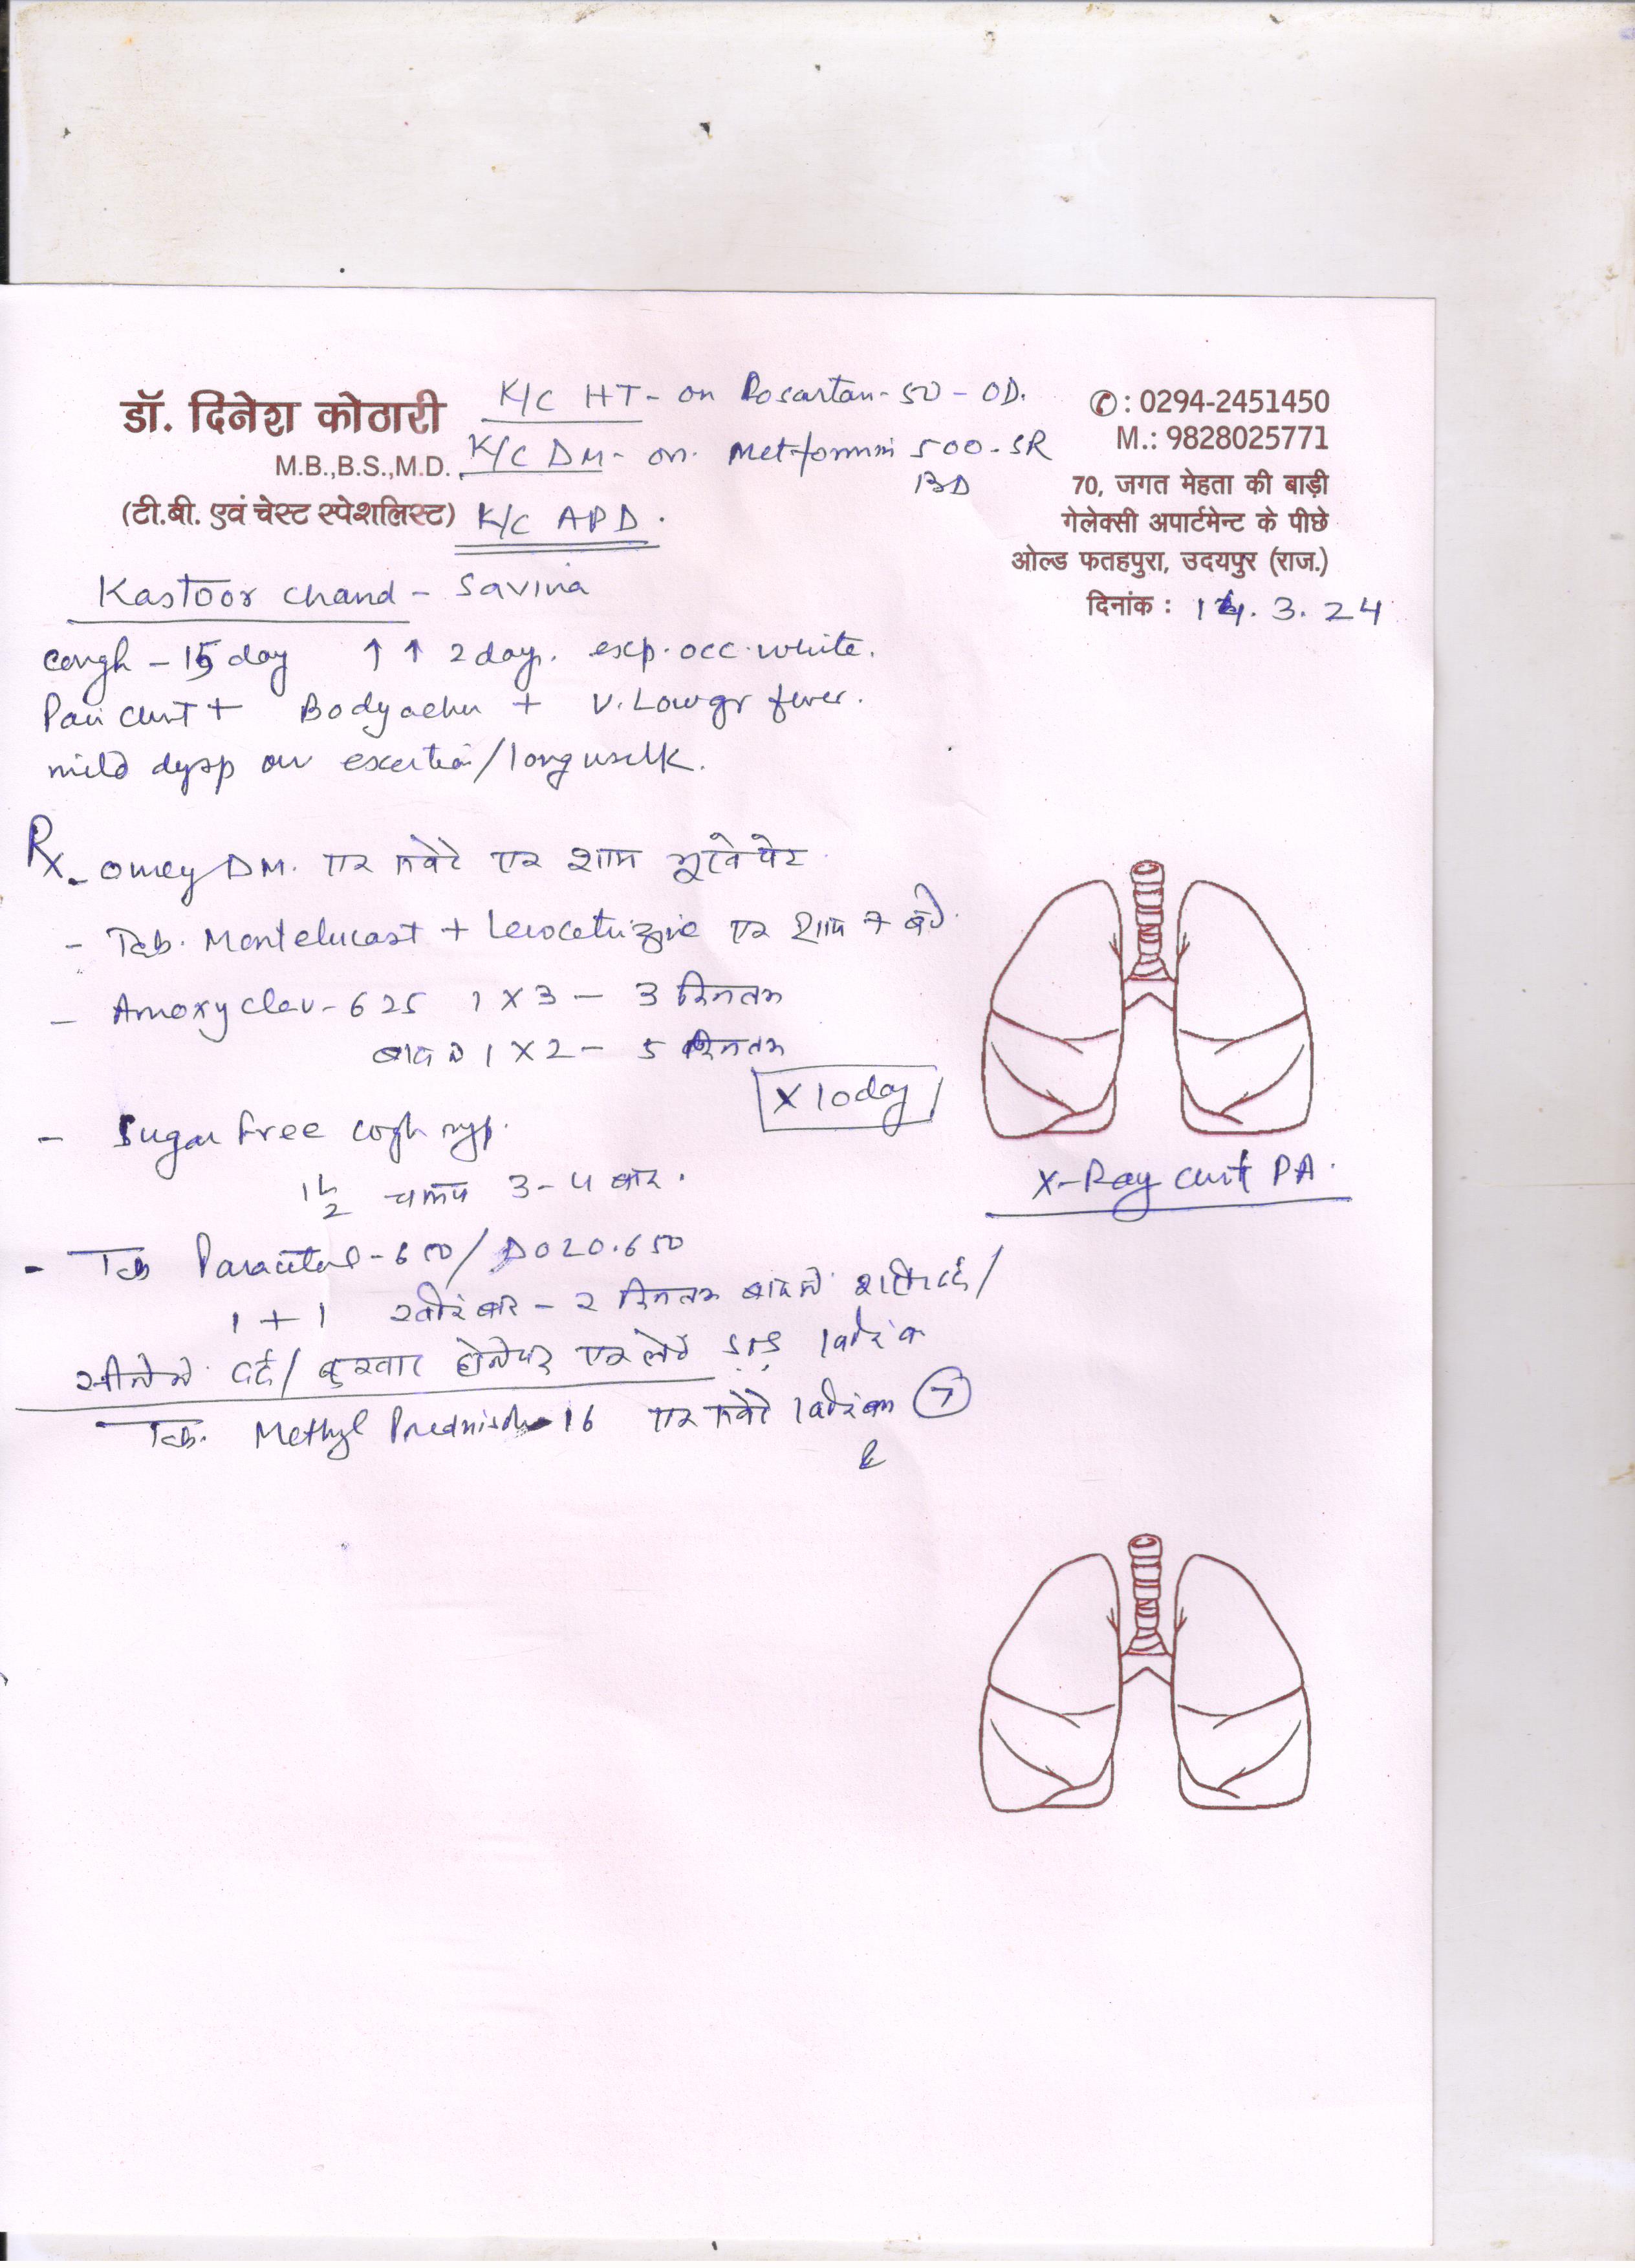 डॉ. दिनेश कोठारी
M.B.,B.S.,M.D.
(टी.बी. एवं चेस्ट स्पेशलिस्ट)
K/C HT - on Losartan - 50 - OD.
K/C DM - on. Metformin 500 - SR
BD
K/C APD.
✆: 0294-2451450
M.: 9828025771
70, जगत मेहता की बाड़ी
गेलेक्सी अपार्टमेन्ट के पीछे
ओल्ड फतहपुरा, उदयपुर (राज.)
दिनांक : 14.3.24
Kastoor chand - Savina
cough - 15 day ↑ ↑ 2 day. exp. occ. white.
Pain chest + Bodyache + V. Low gr fever.
mild dysp on exertion / long walk.
Rx - omey DM. एक सवेरे एक शाम भूखे पेट
- Tab. Montelucast + Levocetrizine एक शाम 7 बजे
- Amoxyclav - 625 1 X 3 - 3 दिनतक
बादमे 1 X 2 - 5 दिनतक
X 10 day
- Sugar free cogh syp.
1 1/2 चम्मच 3 - 4 बार.
X-Ray chest PA.
- Tab Paracetamol - 650 / DOLO.650
1 + 1 - 2 दिनतक बादमे /
सीनेमे दर्द / बुखार होनेपर एक लेवे
Tab. Methyl Prednisolon 16 एक सवेरे 7